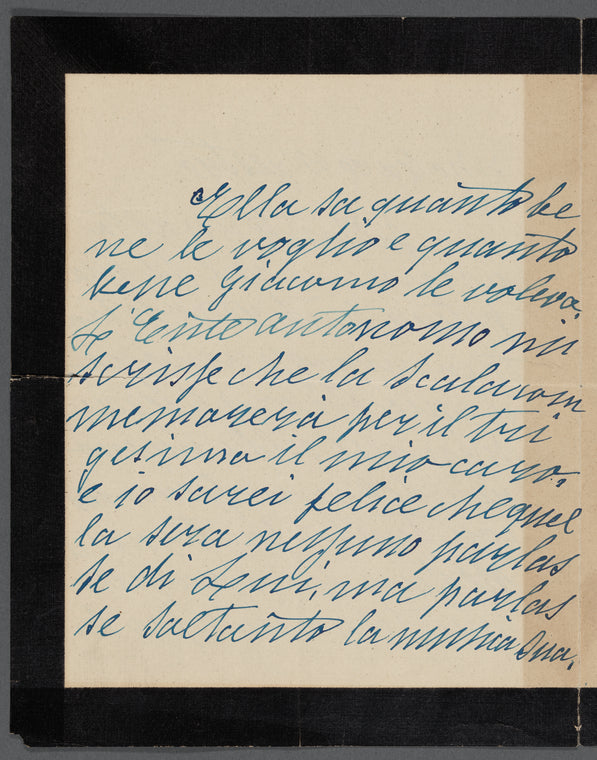 Ella sa quanto be
ne le voglio e quanto
bene Giacomo le voleva.
L'Ente autonomo mi
scrisse che la Scala com
memorerà per il tri
gesimo il mio caro.
e io sarei felice che quel
la sera nessuno parlas
se di Lui, ma parlas
se soltanto la musica sua.